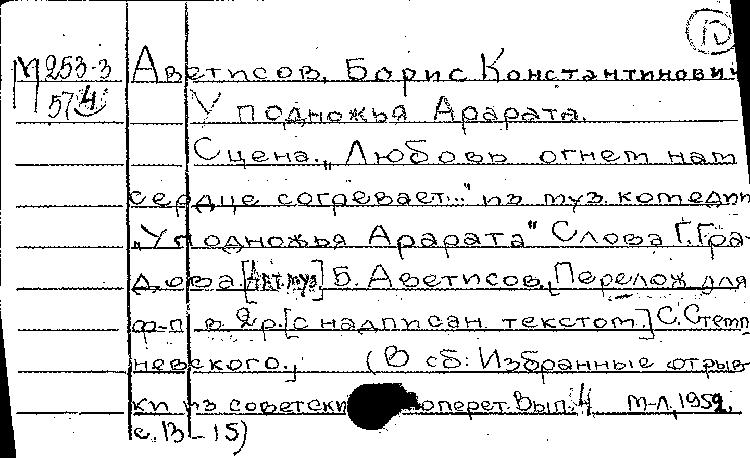 М 253-3 Аветисов, Борис Константинович
57 4 У подножья Арарата.
Сцена. „Любовь огнем нам
сердце согревает..." из муз. комедии
„У подножья Арарата" Слова Г. Гра-
дова. [Авт. муз.] Б. Аветисов. [Перелож для
ф-п в 2 р. [с надписан. текстом.] С. Стемп
невского.] (В сб: Избранные отрыв-
ки из советски оперет. Вып. 4 М-Л, 1952.
с. 13-15)